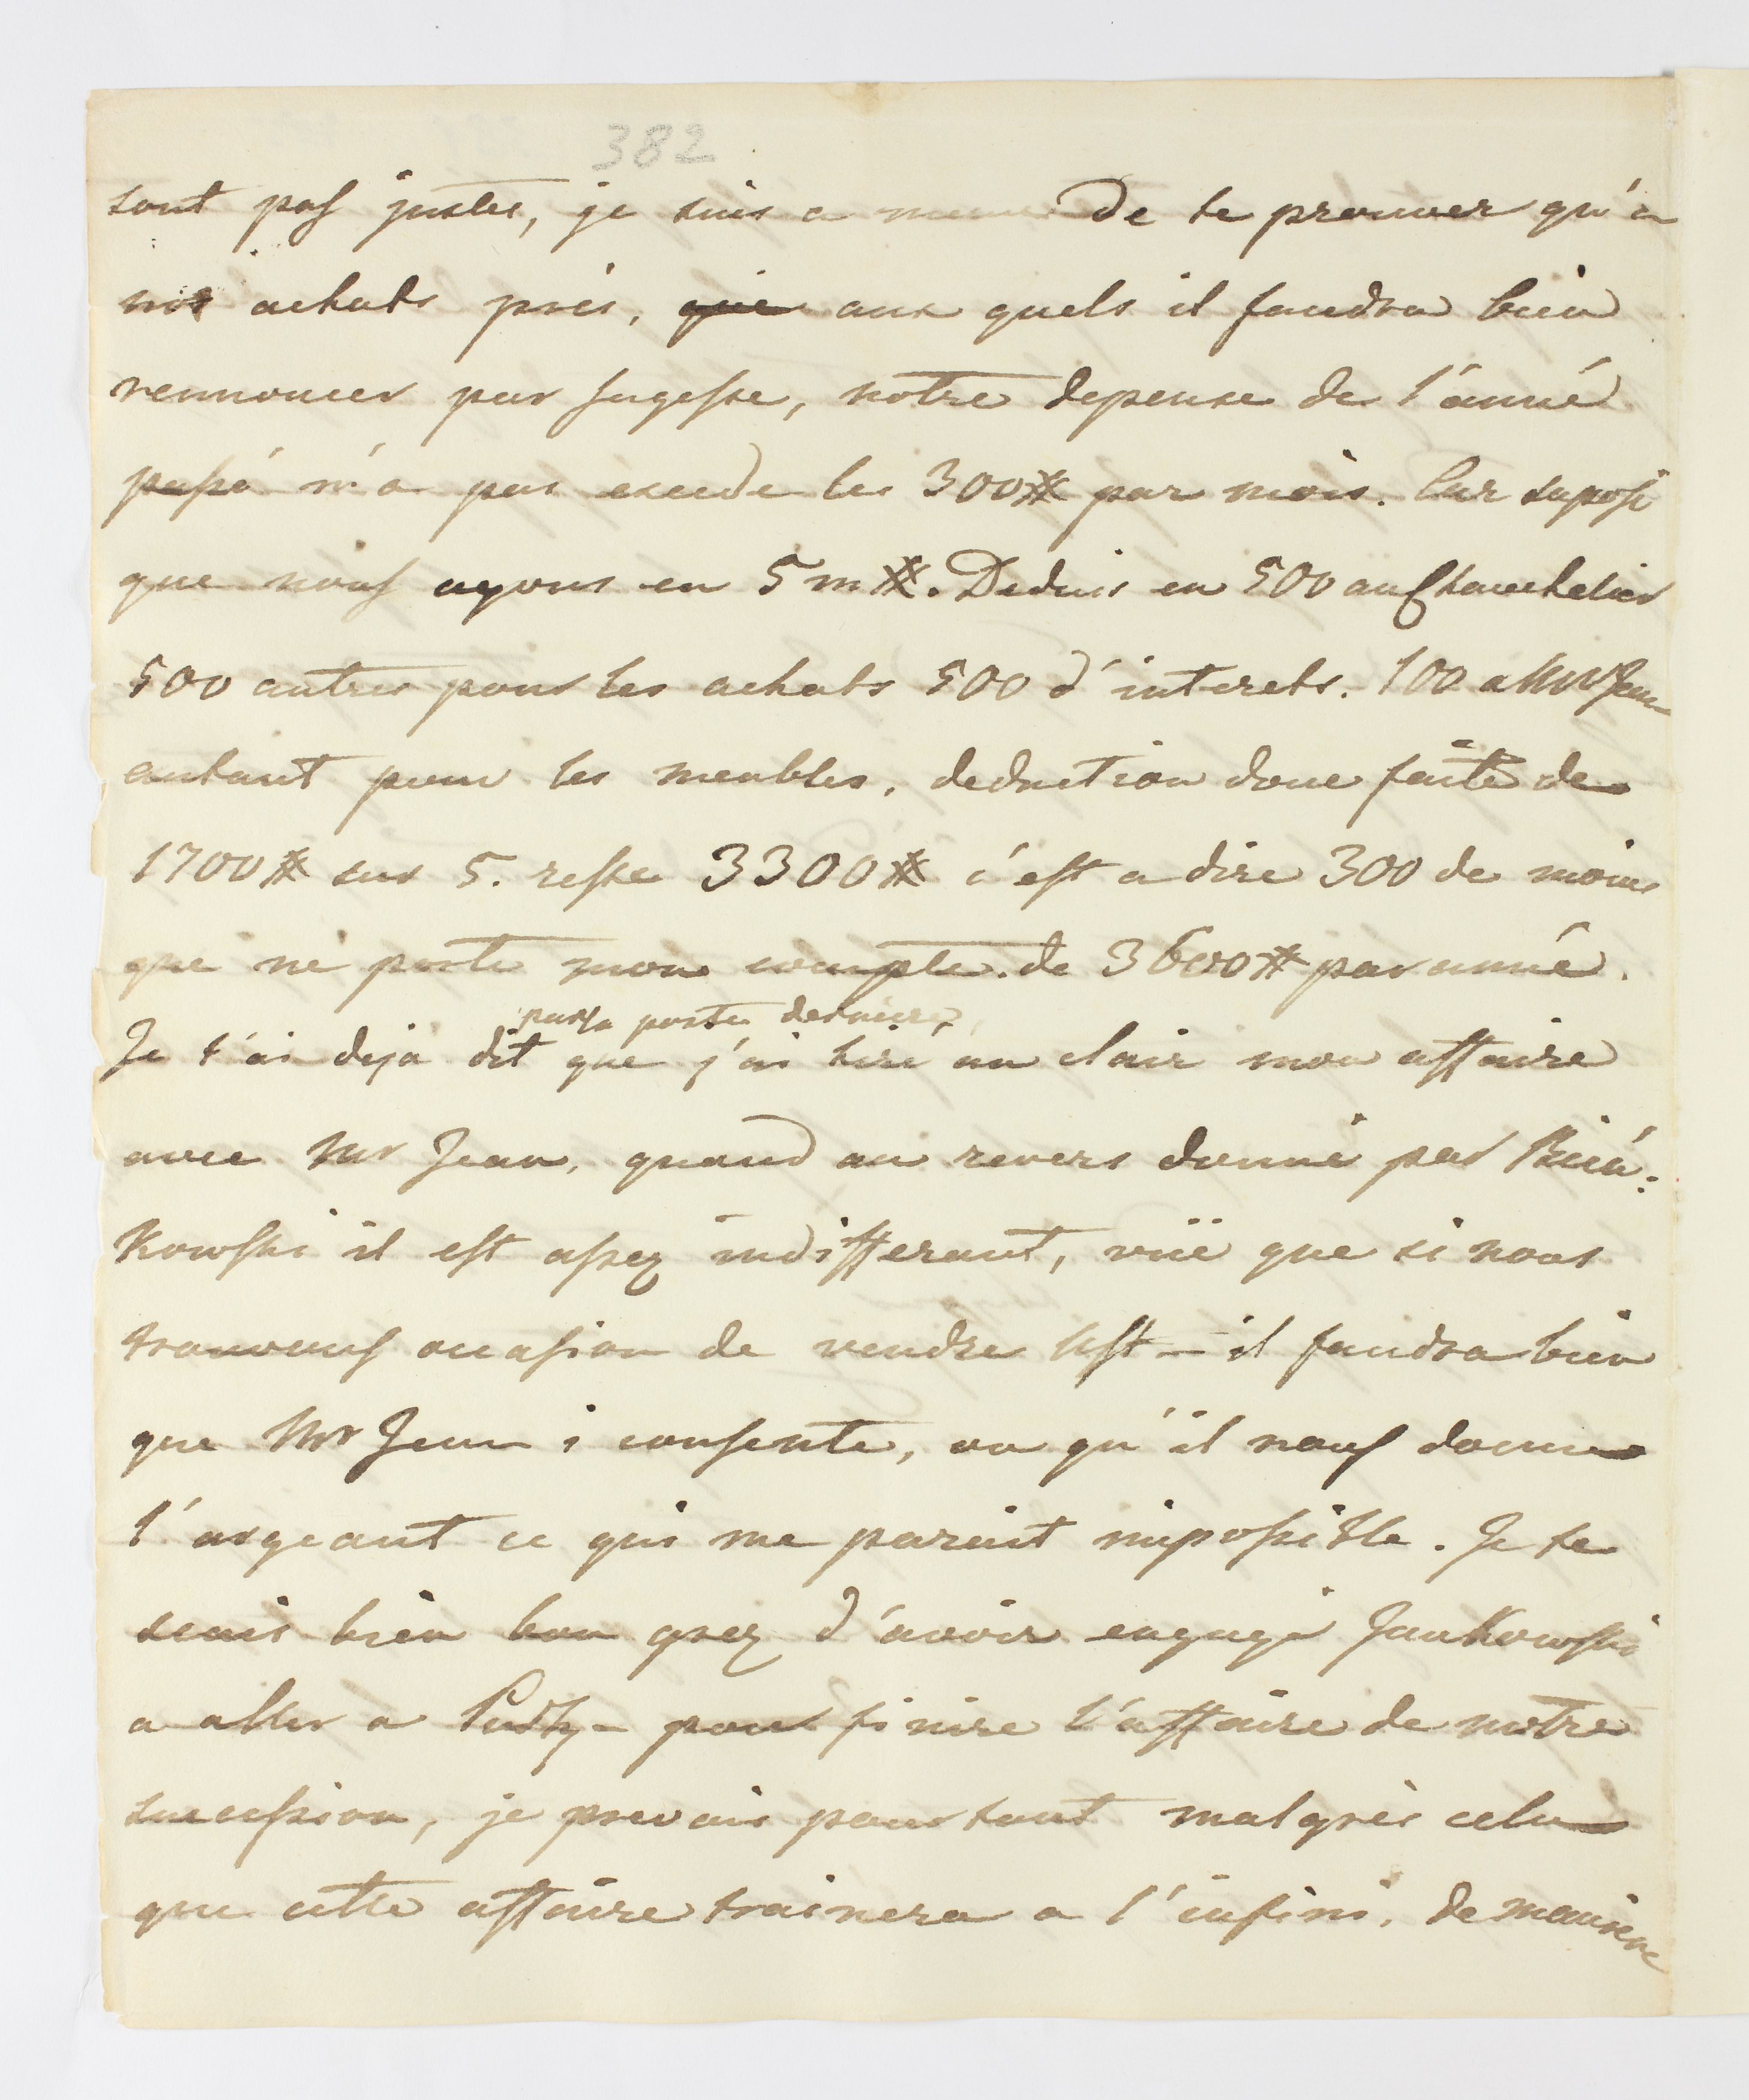 382
sont pas justes, je suis a meme de te prouver qu'a
nos achats près, que aux quels il faudra bien
rennoncer par sagesse, notre depense de l'année
passé n'a pas excedé les 300# par mois. Car suposé
que nous ayons eu 5 m #. Deduis en 500 au
500 autres pour les achats 500 d'interets. 100 a Mr Jean
autant pour les meubles, deduction donc faite de
1700# sur 5. reste 3300# c'est a dire 300 de moins
que ne porte mon compte. de 3600# par année.
par la poste derniere,
Je t'ai deja dit que j'ai tiré au clair mon affaire
avec Mr Jean, quand au revers donné par
il est assez indifferant, vüe que si nous
trouvons occasion de vendre il faudra bien
que Mr Jean i consente, ou qu'il nous donne
l'argeant ce qui me parait impossible. Je te
sçais bien bon grez d'avoir engagé Jankowski
a aller a pour finire l'affaire de notre
succession, je prevois pourtant malgrès cela
que cette affaire trainera a l'infini, de maniere